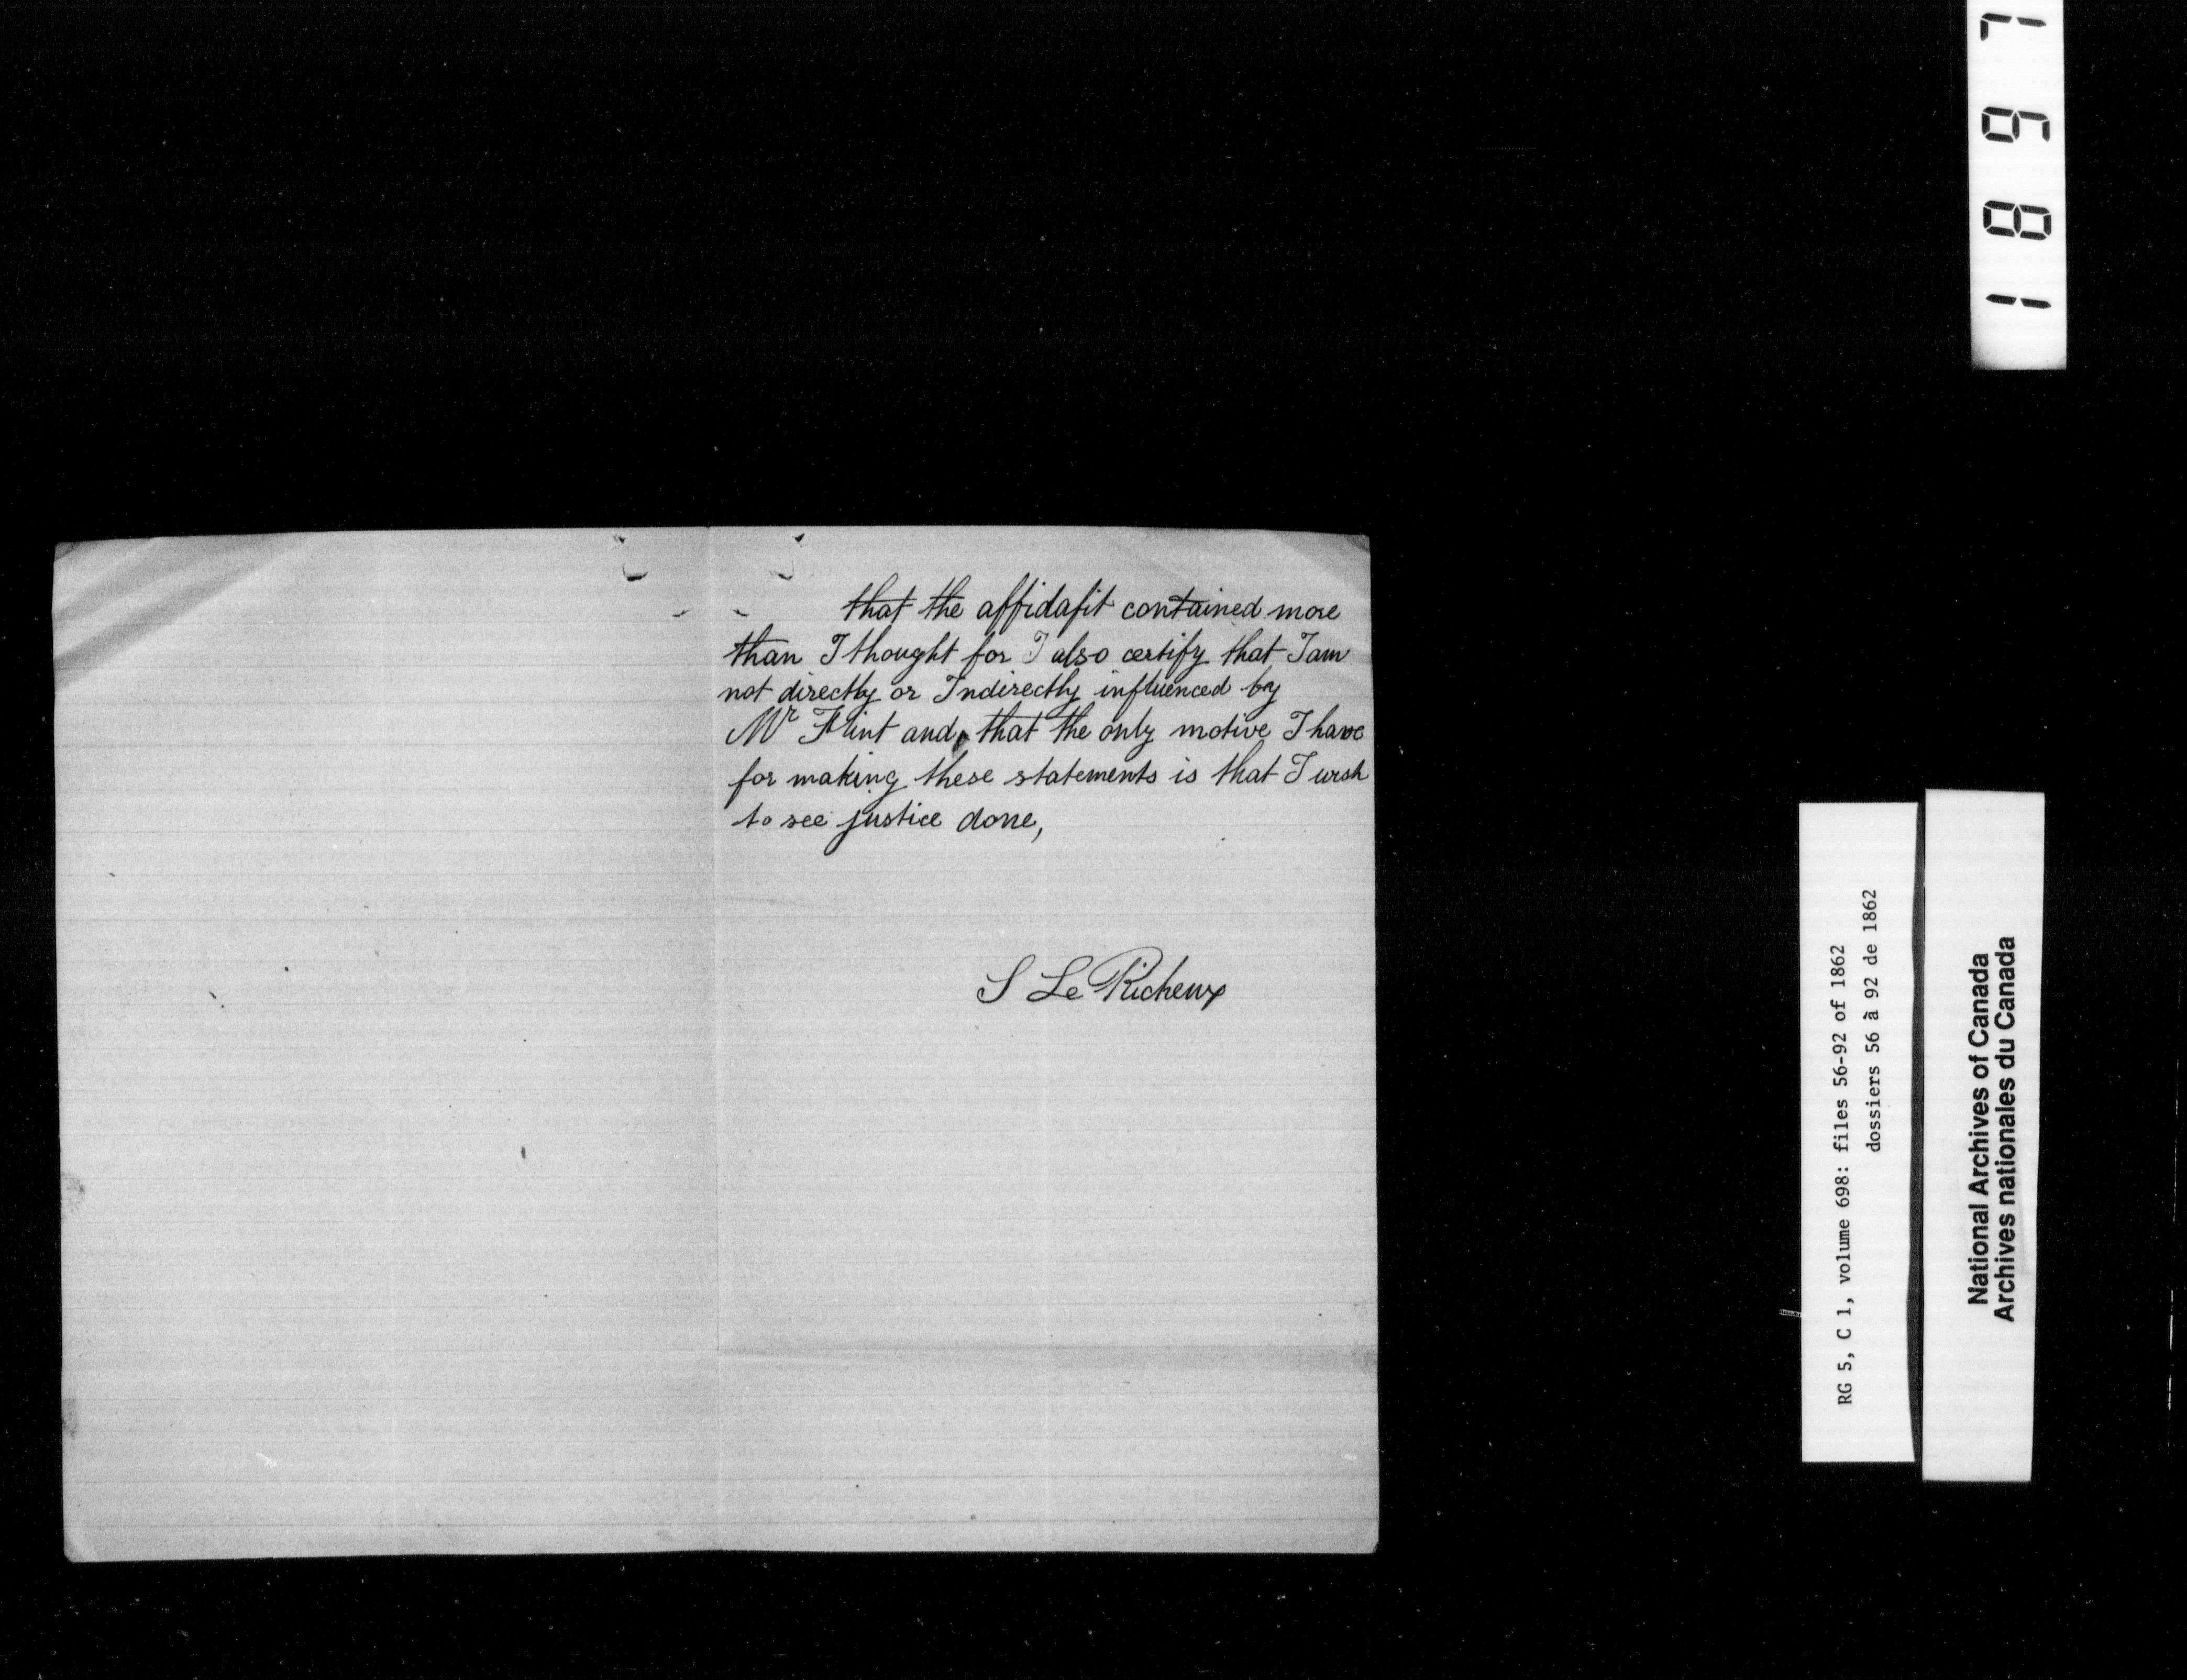 that the affidafit contained more
than I thought for I also certify that I am
not directly or Indirectly influenced by
Mr Flint and that the only motive I have
for making these statements is that I wish
to see justice done,
S Le Richeux
1897
RG 5, C 1, volume 698: files 56-92 of 1862
dossiers 56 à 92 de 1862
National Archives of Canada
Archives nationales du Canada